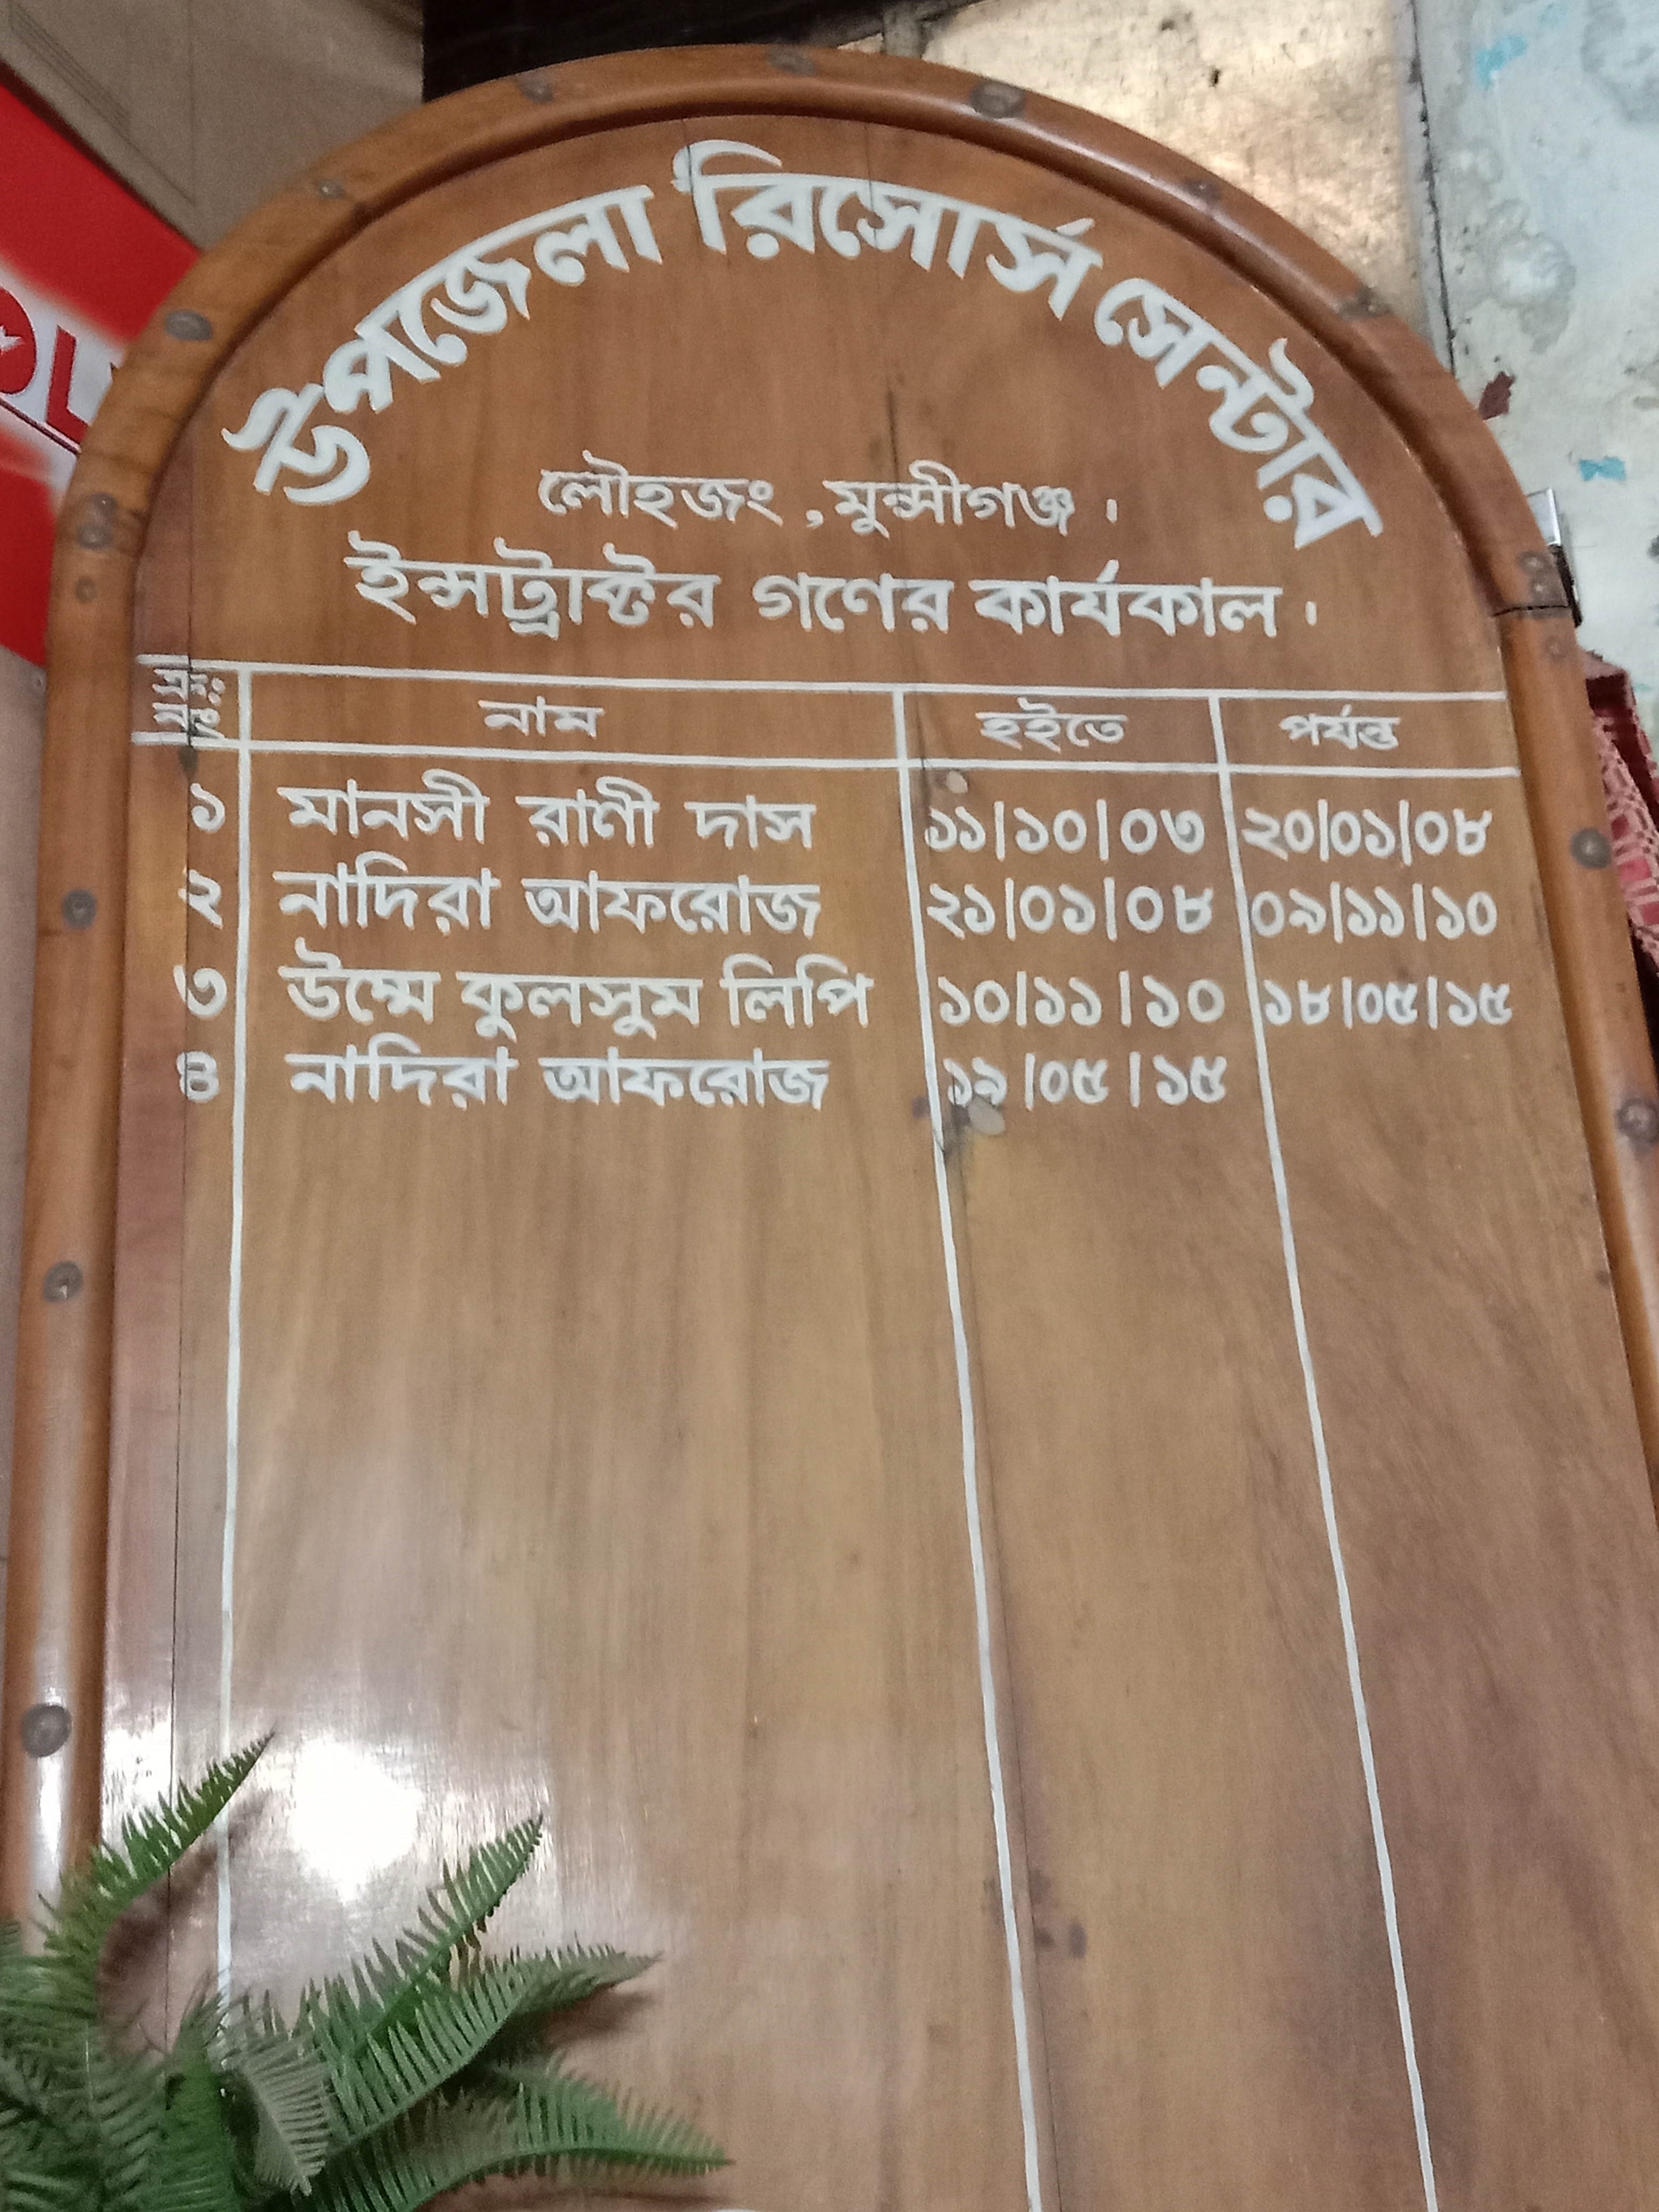 উপজেলা রিসোর্স সেন্টার
লৌহজং , মুন্সীগঞ্জ ।
ইন্সট্রাক্টর গণের কার্যকাল ।
নাম হইতে পর্যন্ত
১ মানসী রাণী দাস ১১|১০|০৩ ২০|০১|০৮
২ নাদিরা আফরোজ ২১|০১|০৮ ০৯|১১|১০
৩ উম্মে কুলসুম লিপি ১০|১১|১০ ১৮|০৫|১৫
৪ নাদিরা আফরোজ ১৯|০৫|১৫